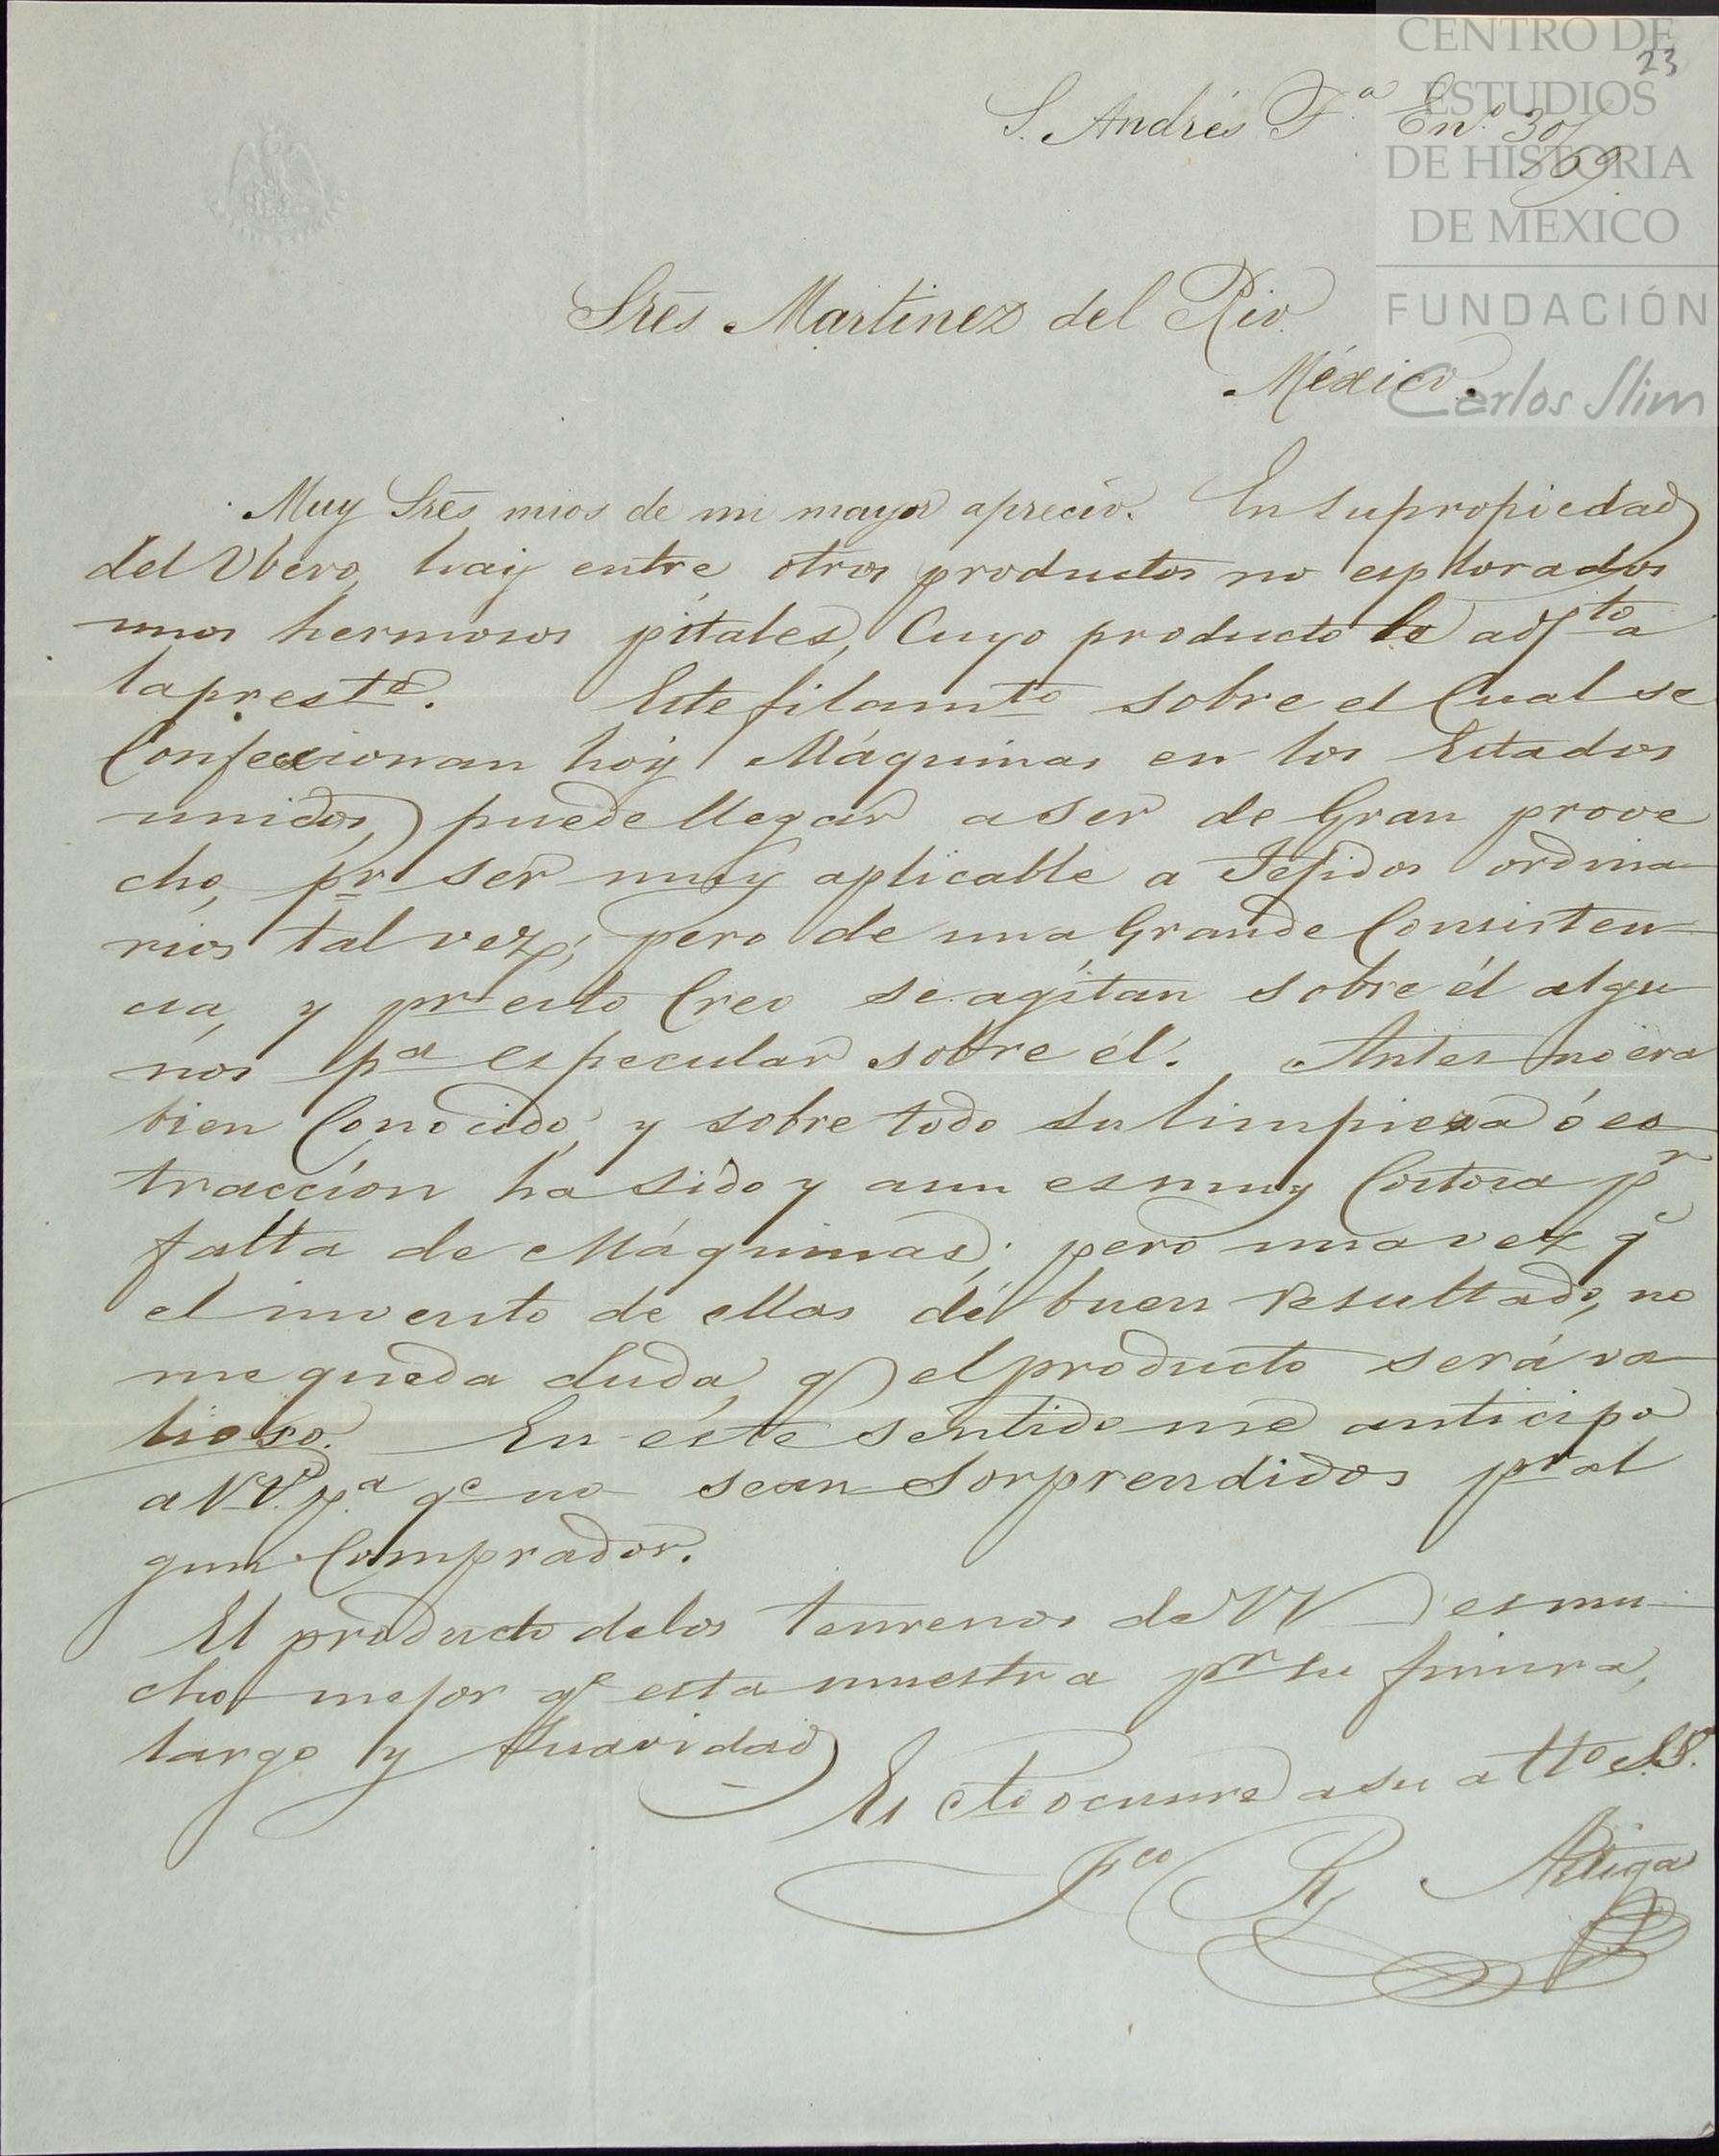 CENTRO DE
ESTUDIOS
DE HISTORIA
DE MEXICO
FUNDACIÓN
Carlos Slim
23
S. Andrés T.ª En.º 30/69
Sres Martinez del Rio
México.
Muy Sres mios de mi mayor aprecio. En su propiedad
del Ubero, hay entre otros productos no esplorados
unos hermosos pitales, Cuyo producto le adj.to a
la prest.e. Este filam.to sobre el Cual se
Confeccionan hoy Máquinas en los Estados
unidos, puede llegar a ser de Gran prove
cho, pr ser muy aplicable a Tejidos ordina
rios tal vez; pero de una Grande Consisten
cia, y pr esto Creo se agitan sobre él algu
nos pa especular sobre él. Antes no era
bien Conocido, y sobre todo su limpieza ó es
tracción ha sido y aun es muy Costosa pr
falta de Máquinas; pero una vez q
el invento de ellas dé buen resultado, no
me queda duda, q el producto será va
lioso. En éste sentido me anticipo
a VV. p.a qe no sean sorprendidos pr al
gun Comprador.
El producto de los terrenos de VV es mu
cho mejor qe esta muestra pr su finura,
largo y suavidad
Es cto ocurre a su atto S.S.
Fco